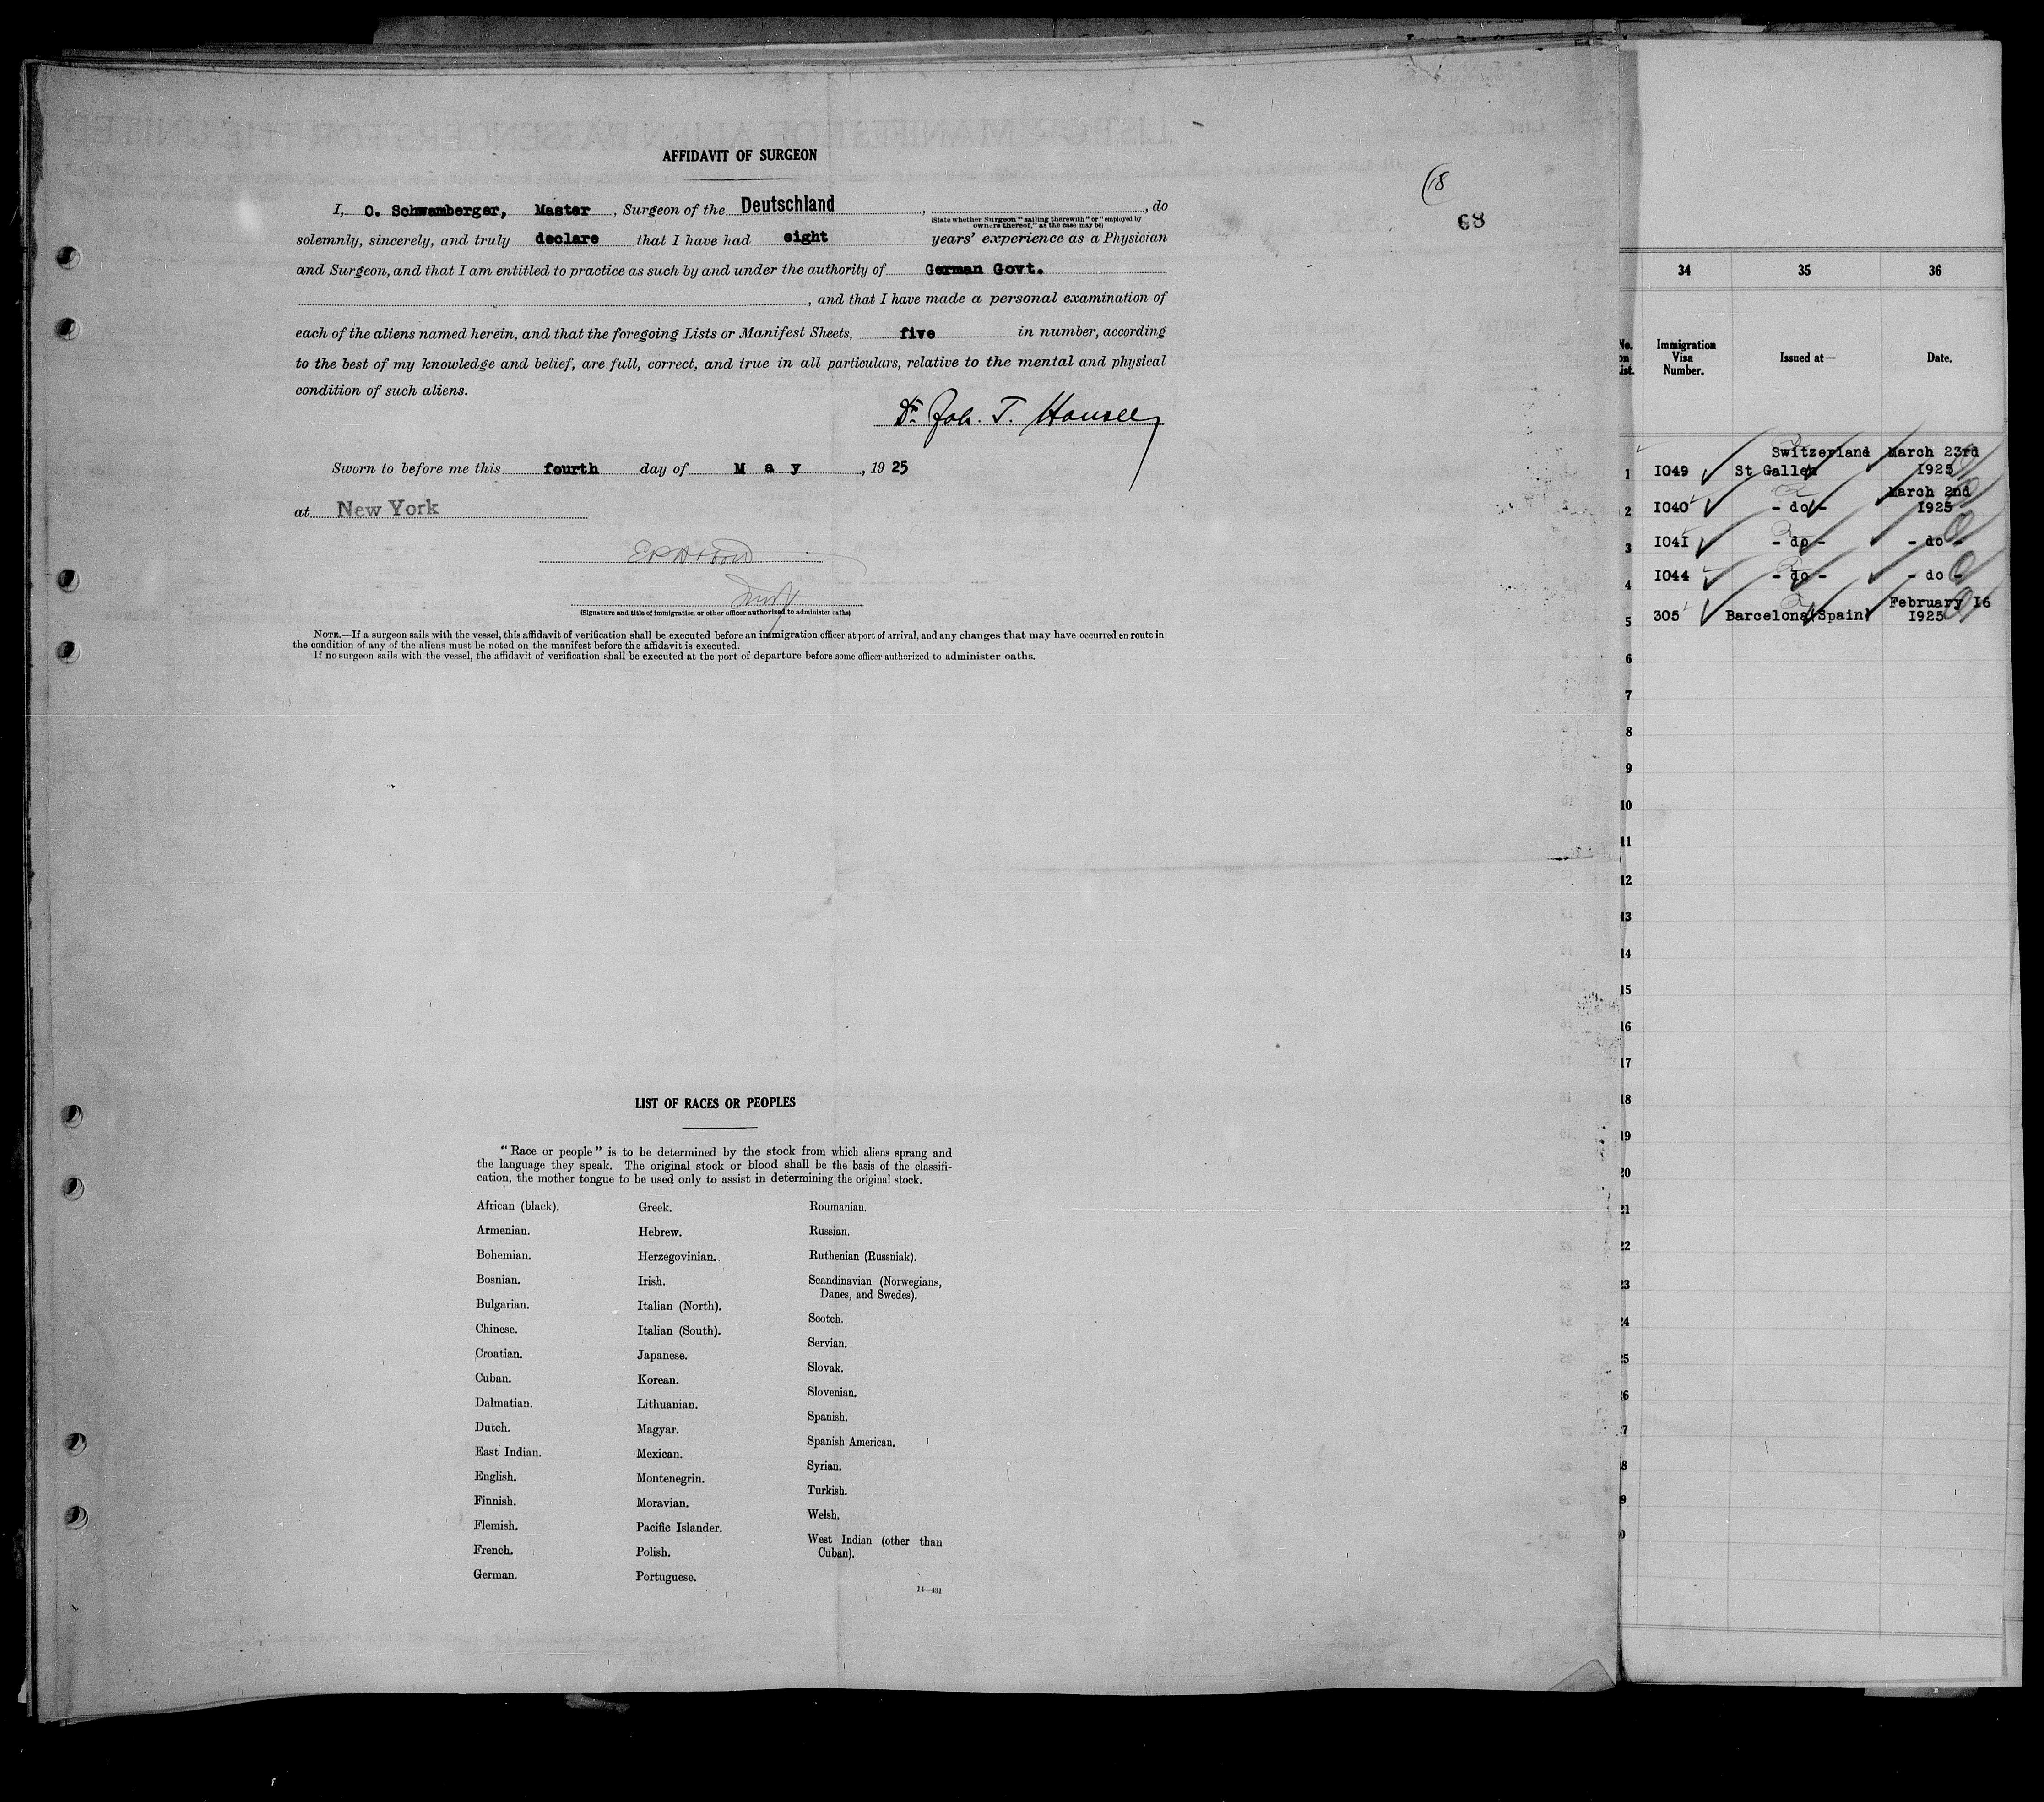 AFFIDAVIT OF SURGEON
(18
68
I, O. Schwamberger, Master, Surgeon of the Deutschland, , do
(State whether Surgeon "sailing therewith" or "employed by
owners thereof," as the case may be)
solemnly, sincerely, and truly declare that I have had eight years' experience as a Physician
and Surgeon, and that I am entitled to practice as such by and under the authority of German Govt.
, and that I have made a personal examination of
each of the aliens named herein, and that the foregoing Lists or Manifest Sheets, five in number, according
to the best of my knowledge and belief, are full, correct, and true in all particulars, relative to the mental and physical
condition of such aliens.
Dr. Joh. T.
Sworn to before me this fourth day of May, 1925
at New York
(Signature and title of immigration or other officer authorized to administer oaths)
NOTE.—If a surgeon sails with the vessel, this affidavit of verification shall be executed before an immigration officer at port of arrival, and any changes that may have occurred en route in
the condition of any of the aliens must be noted on the manifest before the affidavit is executed.
If no surgeon sails with the vessel, the affidavit of verification shall be executed at the port of departure before some officer authorized to administer oaths.
LIST OF RACES OR PEOPLES
"Race or people" is to be determined by the stock from which aliens sprang and
the language they speak. The original stock or blood shall be the basis of the classifi-
cation, the mother tongue to be used only to assist in determining the original stock.
African (black).
Armenian.
Bohemian.
Bosnian.
Bulgarian.
Chinese.
Croatian.
Cuban.
Dalmatian.
Dutch.
East Indian.
English.
Finnish.
Flemish.
French.
German.
Greek.
Hebrew.
Herzegovinian.
Irish.
Italian (North).
Italian (South).
Japanese.
Korean.
Lithuanian.
Magyar.
Mexican.
Montenegrin.
Moravian.
Pacific Islander.
Polish.
Portuguese.
Roumanian.
Russian.
Ruthenian (Russniak).
Scandinavian (Norwegians,
Danes, and Swedes).
Scotch.
Servian.
Slovak.
Slovenian.
Spanish.
Spanish American.
Syrian.
Turkish.
Welsh.
West Indian (other than
Cuban).
14—431
34 35 36
No. on list. Immigration Visa Number. Issued at— Date.
Switzerland March 23rd
1 1049 St Gallen 1925
March 2nd
2 1040 - do - 1925
3 1041 - do - - do -
4 1044 - do - - do -
February 16
5 305 Barcelona(Spain) 1925
6
7
8
9
10
11
12
13
14
15
16
17
18
19
20
21
22
23
24
25
26
27
28
29
30